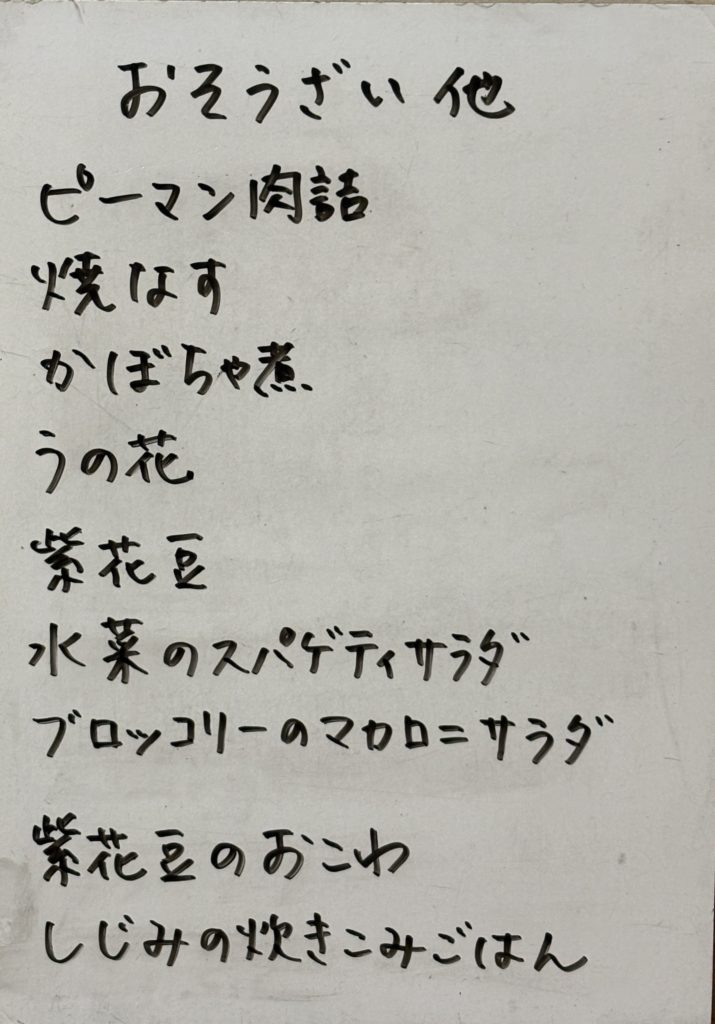 おそうざい 他
ピーマン肉詰
焼なす
かぼちゃ煮
うの花
紫花豆
水菜のスパゲティサラダ
ブロッコリーのマカロニサラダ
紫花豆のおこわ
しじみの炊きこみごはん